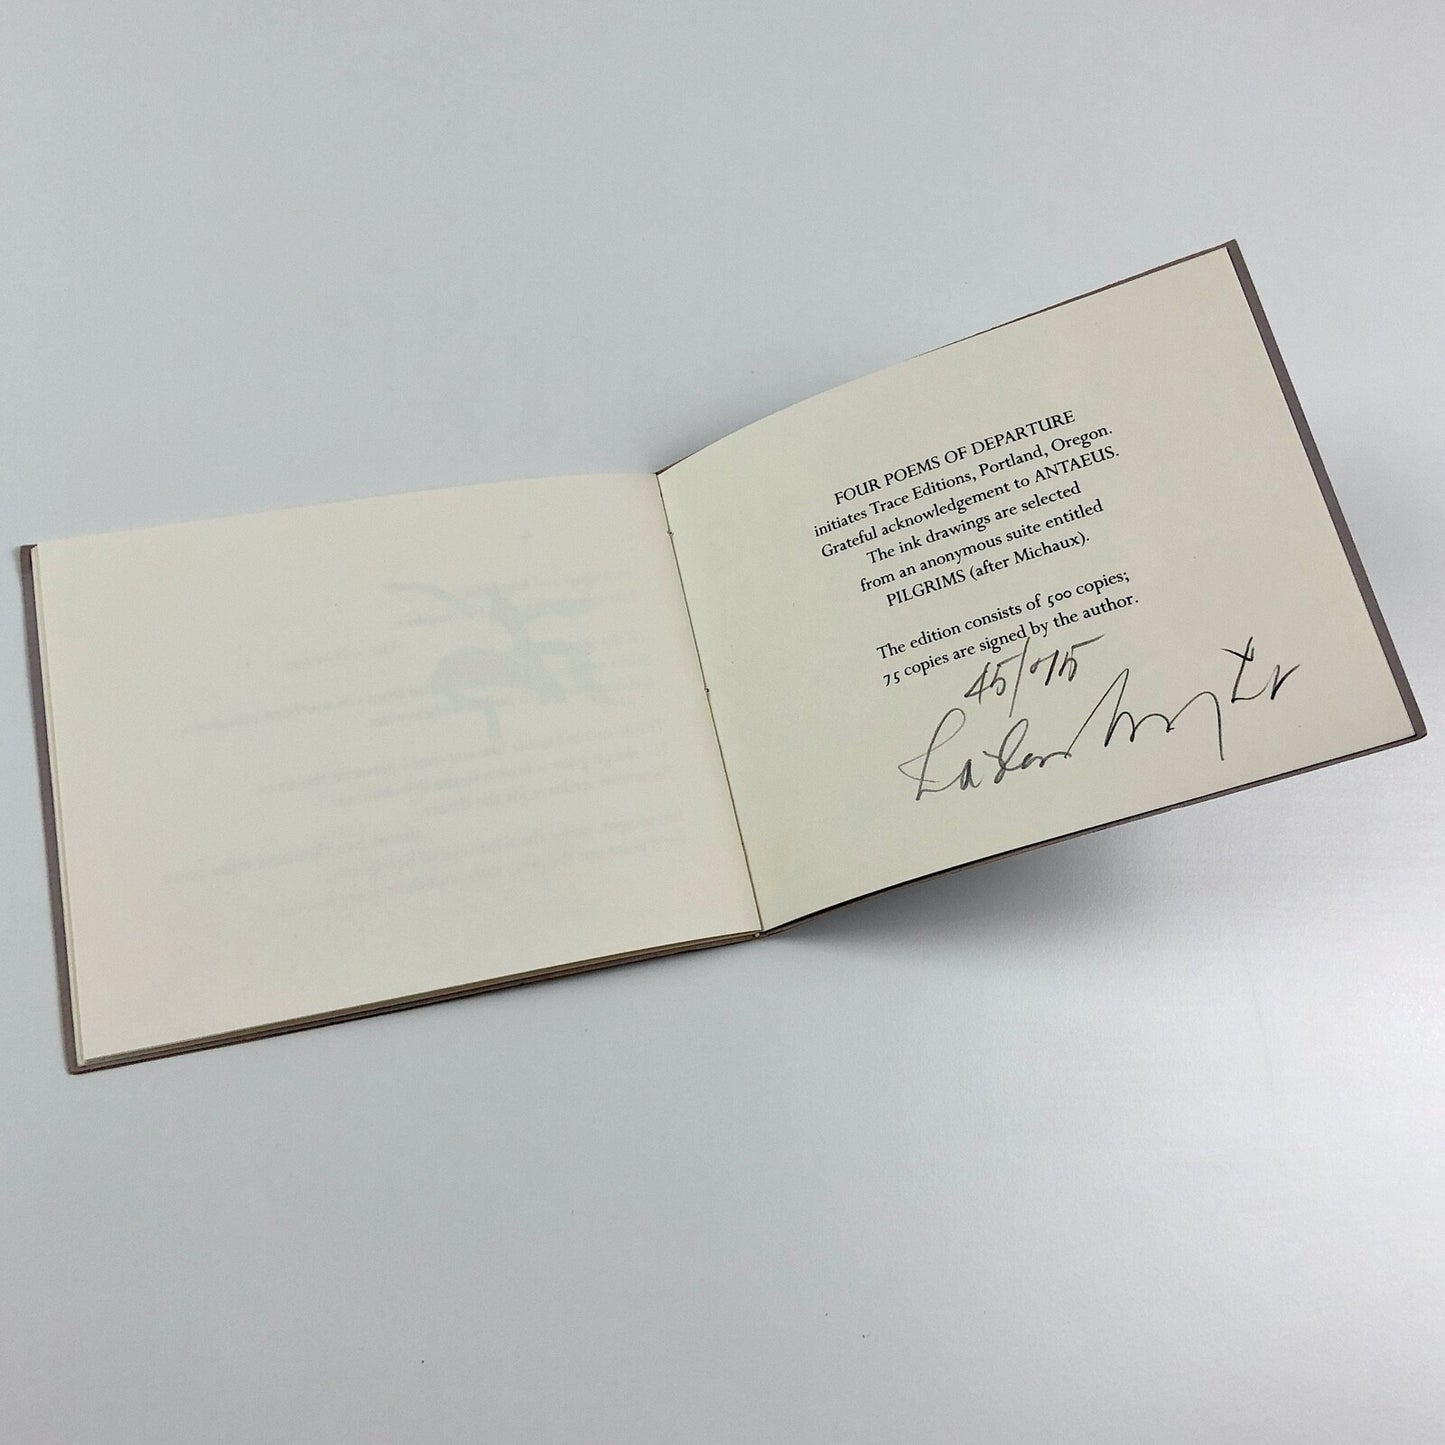 FOUR POEMS OF DEPARTURE
initiates Trace Editions, Portland, Oregon.
Grateful acknowledgement to ANTAEUS.
The ink drawings are selected
from an anonymous suite entitled
PILGRIMS (after Michaux).
The edition consists of 500 copies;
75 copies are signed by the author.
45/75